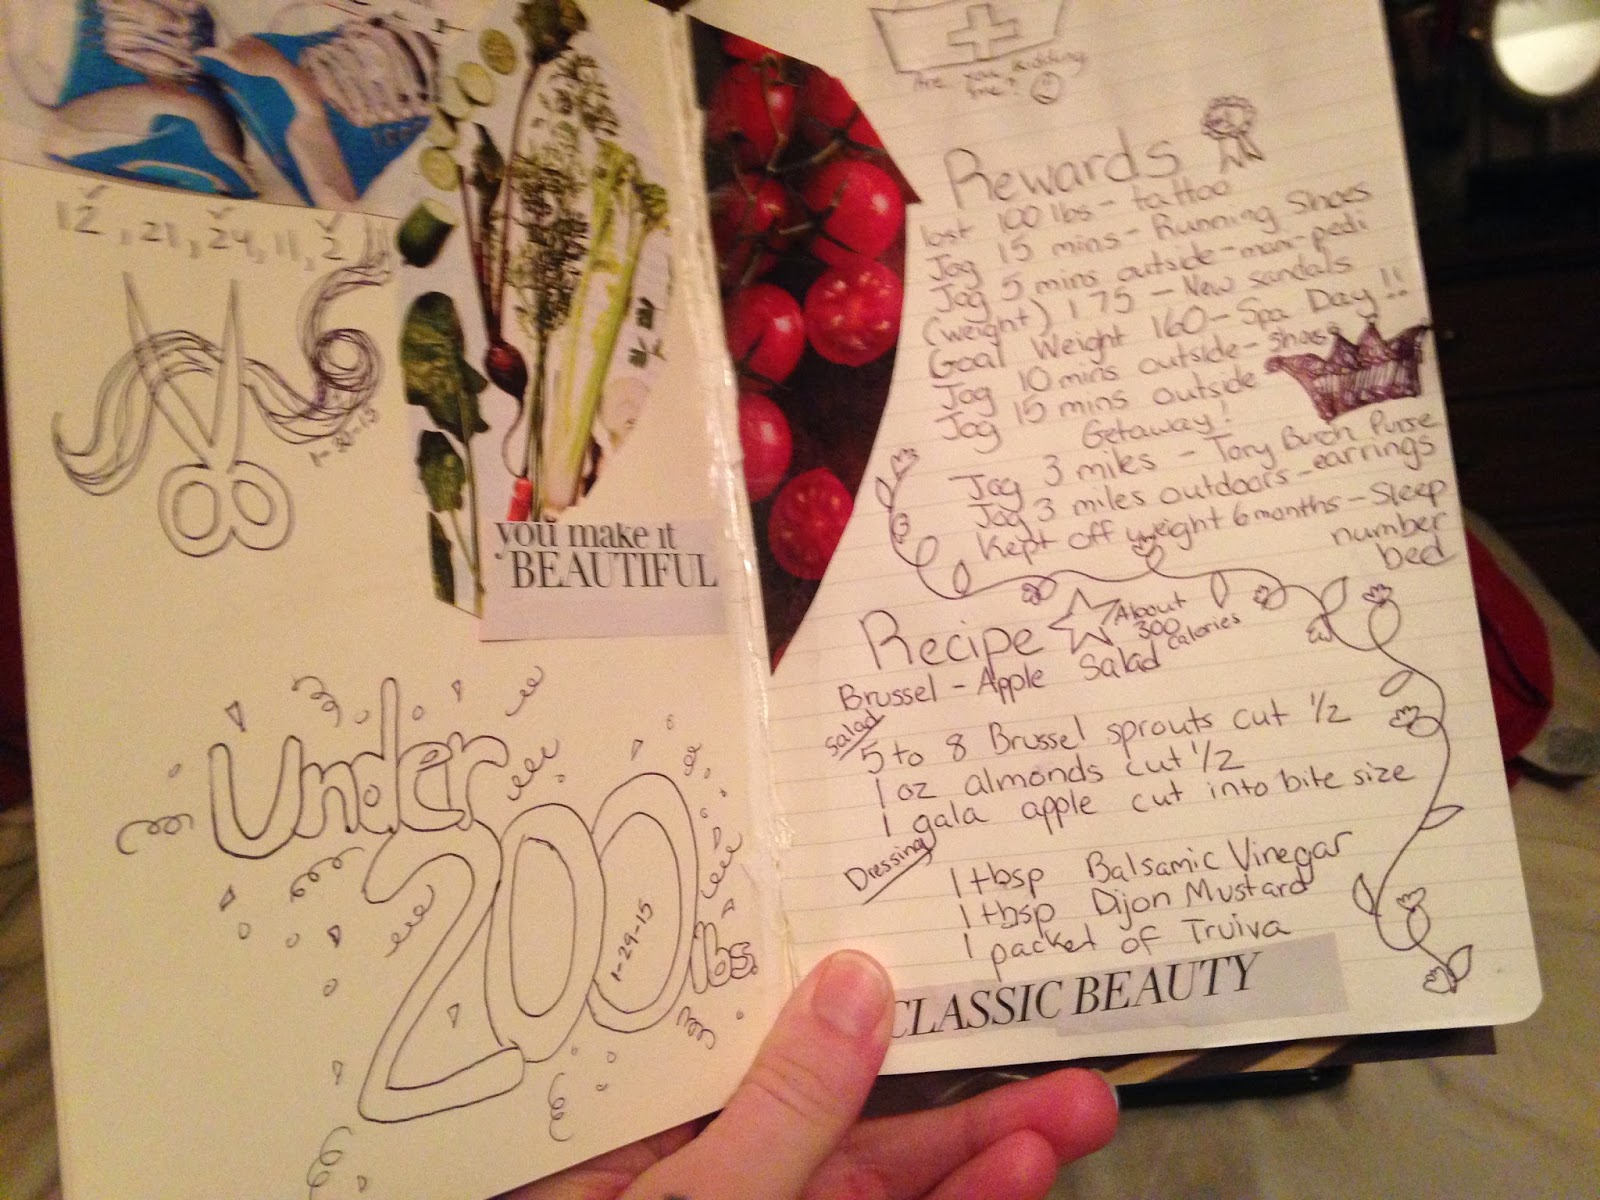 12, 21, 24, 11, 2
1-30-15
you make it
BEAUTIFUL
Under
200 lbs.
1-29-15
Are you kidding
me?
Rewards
lost 100 lbs - tattoo
Jog 15 mins - Running Shoes
Jog 5 mins outside - mani-pedi
(weight) 175 - New sandals
Goal Weight 160 - Spa Day!!
Jog 10 mins outside - shoes
Jog 15 mins outside -
Getaway!
Jog 3 miles - Tory Burch Purse
Jog 3 miles outdoors - earrings
Kept off weight 6 months - Sleep
number
bed
Recipe
About
300
calories
Brussel - Apple Salad
Salad
5 to 8 Brussel sprouts cut 1/2
1 oz almonds cut 1/2
1 gala apple cut into bite size
Dressing
1 tbsp Balsamic Vinegar
1 tbsp Dijon Mustard
1 packet of Truiva
CLASSIC BEAUTY